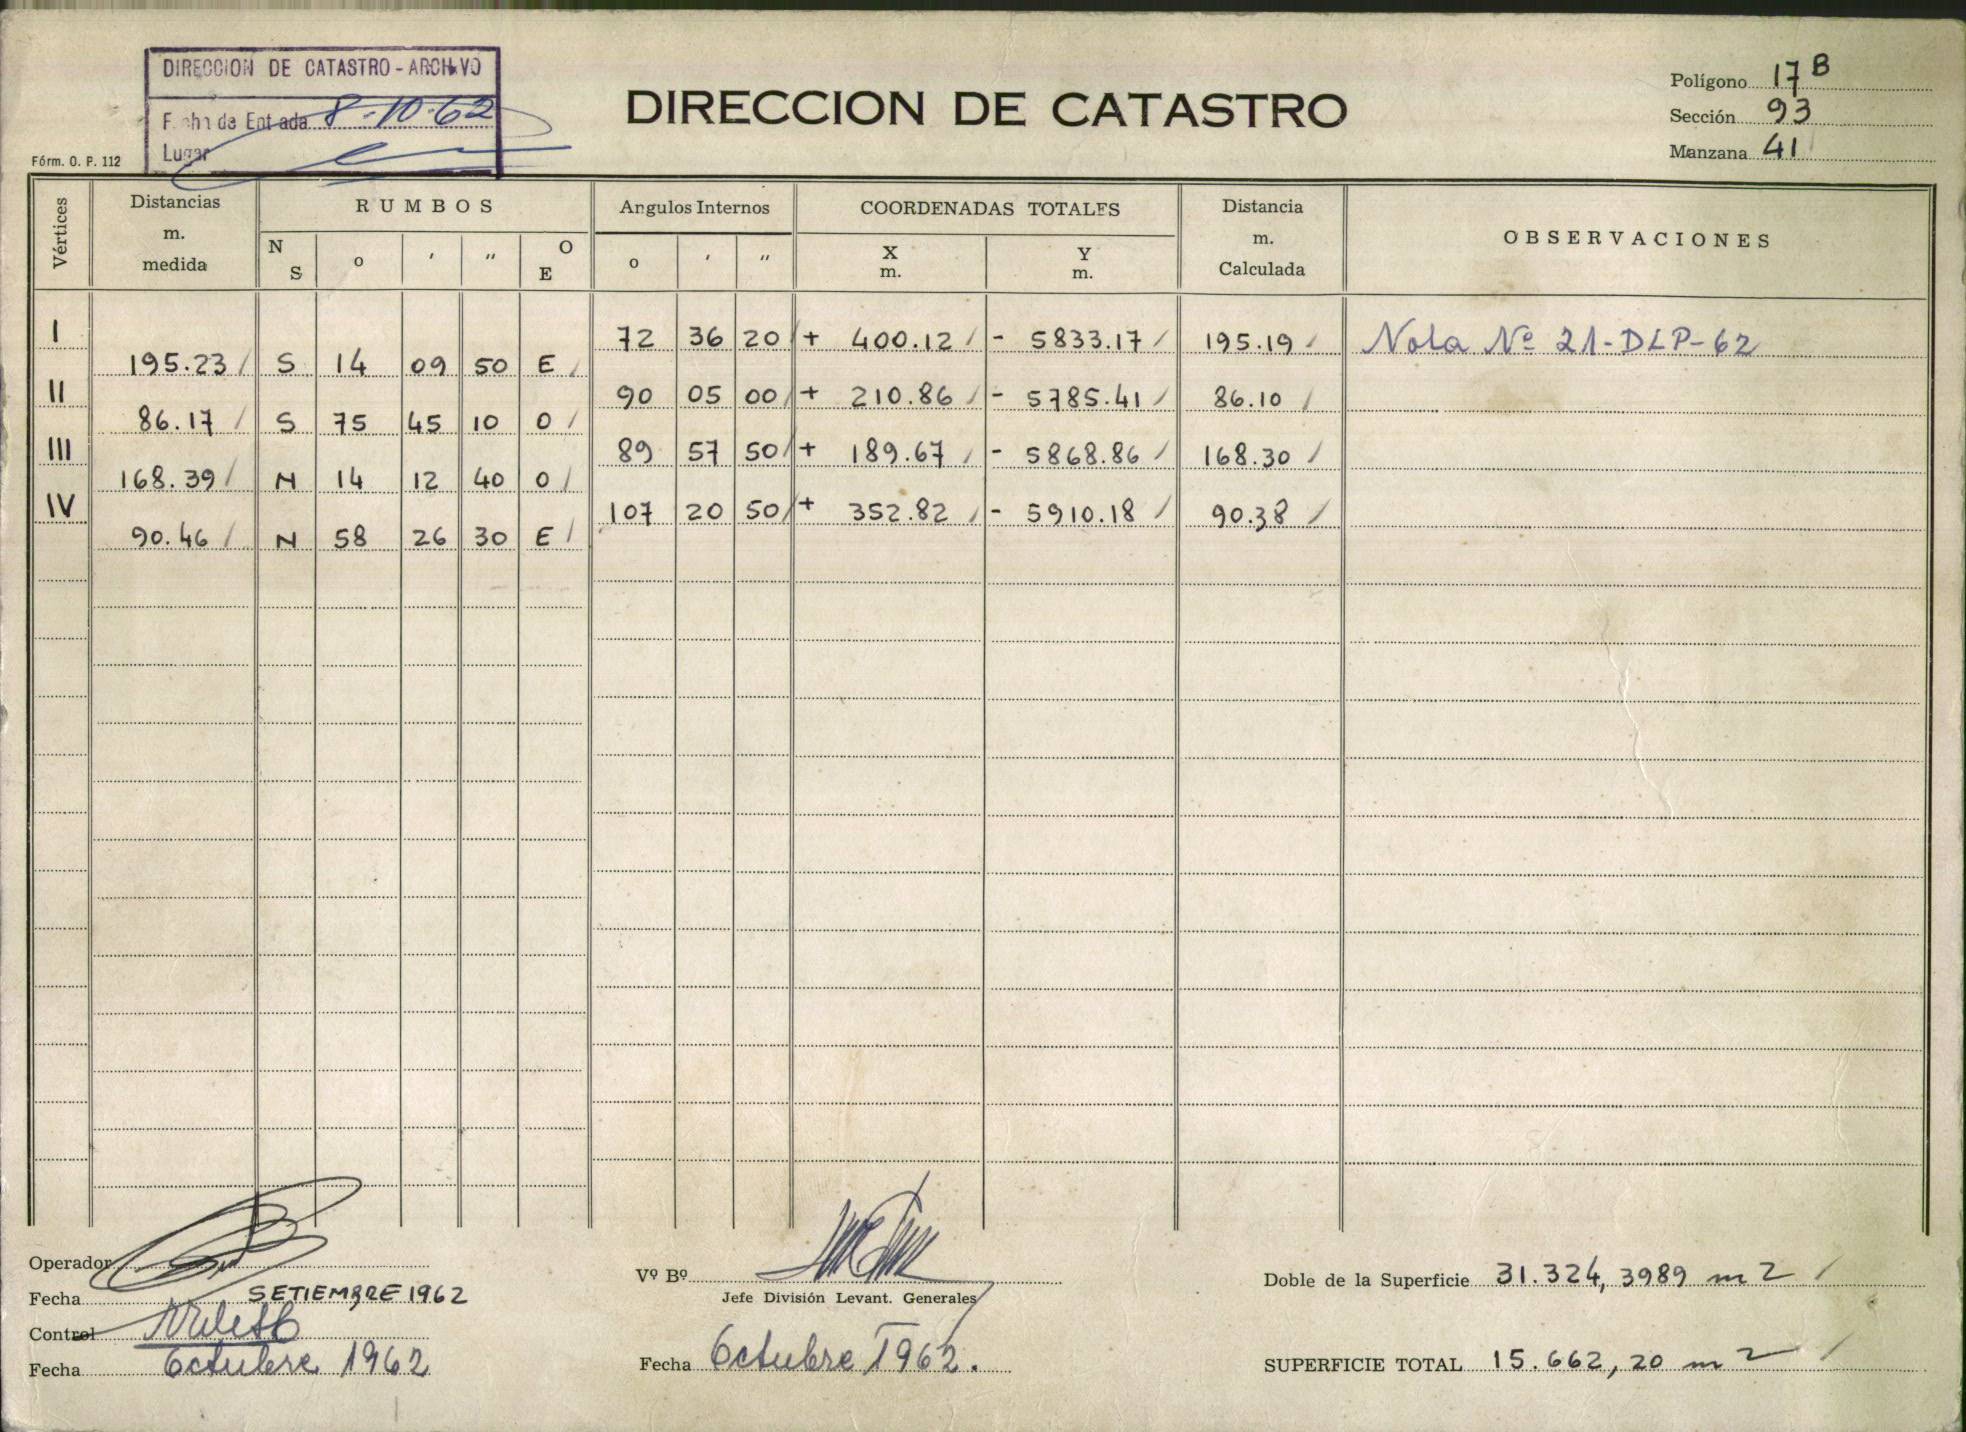 DIRECCION DE CATASTRO - ARCHIVO
Fecha de Entrada 8-10-62
Lugar
Fórm. O. P. 112
DIRECCION DE CATASTRO
Polígono 17 B
Sección 93
Manzana 41
Vértices Distancias m. medida RUMBOS Angulos Internos COORDENADAS TOTALES Distancia m. Calculada OBSERVACIONES
N S o ′ ″ O E o ′ ″ X m. Y m.
I 72 36 20 + 400.12 - 5833.17 195.19 Nota Nº 21-DLP-62
195.23 S 14 09 50 E
II 90 05 00 + 210.86 - 5785.41 86.10
86.17 S 75 45 10 O
III 89 57 50 + 189.67 - 5868.86 168.30
168.39 N 14 12 40 O
IV 107 20 50 + 352.82 - 5910.18 90.38
90.46 N 58 26 30 E
Operador
Fecha SETIEMBRE 1962
Control
Fecha Octubre 1962
Vº Bº
Jefe División Levant. Generales
Fecha Octubre 1962.
Doble de la Superficie 31.324,3989 m2
SUPERFICIE TOTAL 15.662,20 m2